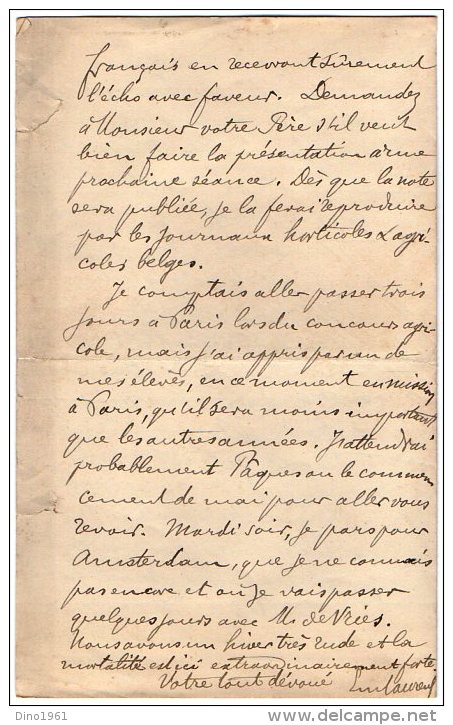 français en recevront sûrement
l'écho avec faveur. Demandez
à Monsieur votre Père s'il veut
bien faire la présentation à une
prochaine séance. Dès que la note
sera publiée, je la ferai reproduire
par les journaux horticoles & agri-
coles belges.
Je comptais aller passer trois
jours à Paris lors du concours agri-
cole, mais j'ai appris par un de
mes élèves, en ce moment en mission
à Paris, qu'il sera moins important
que les autres années. J'attendrai
probablement Pâques ou le commen-
cement de mai pour aller vous
revoir. Mardi soir, je pars pour
Amsterdam, que je ne connais
pas encore et où je vais passer
quelques jours avec M. de Vries.
Nous avons un hiver très rude et la
mortalité est ici extraordinairement forte.
Votre tout dévoué Em Laurent
Dino1961
delcampe.net